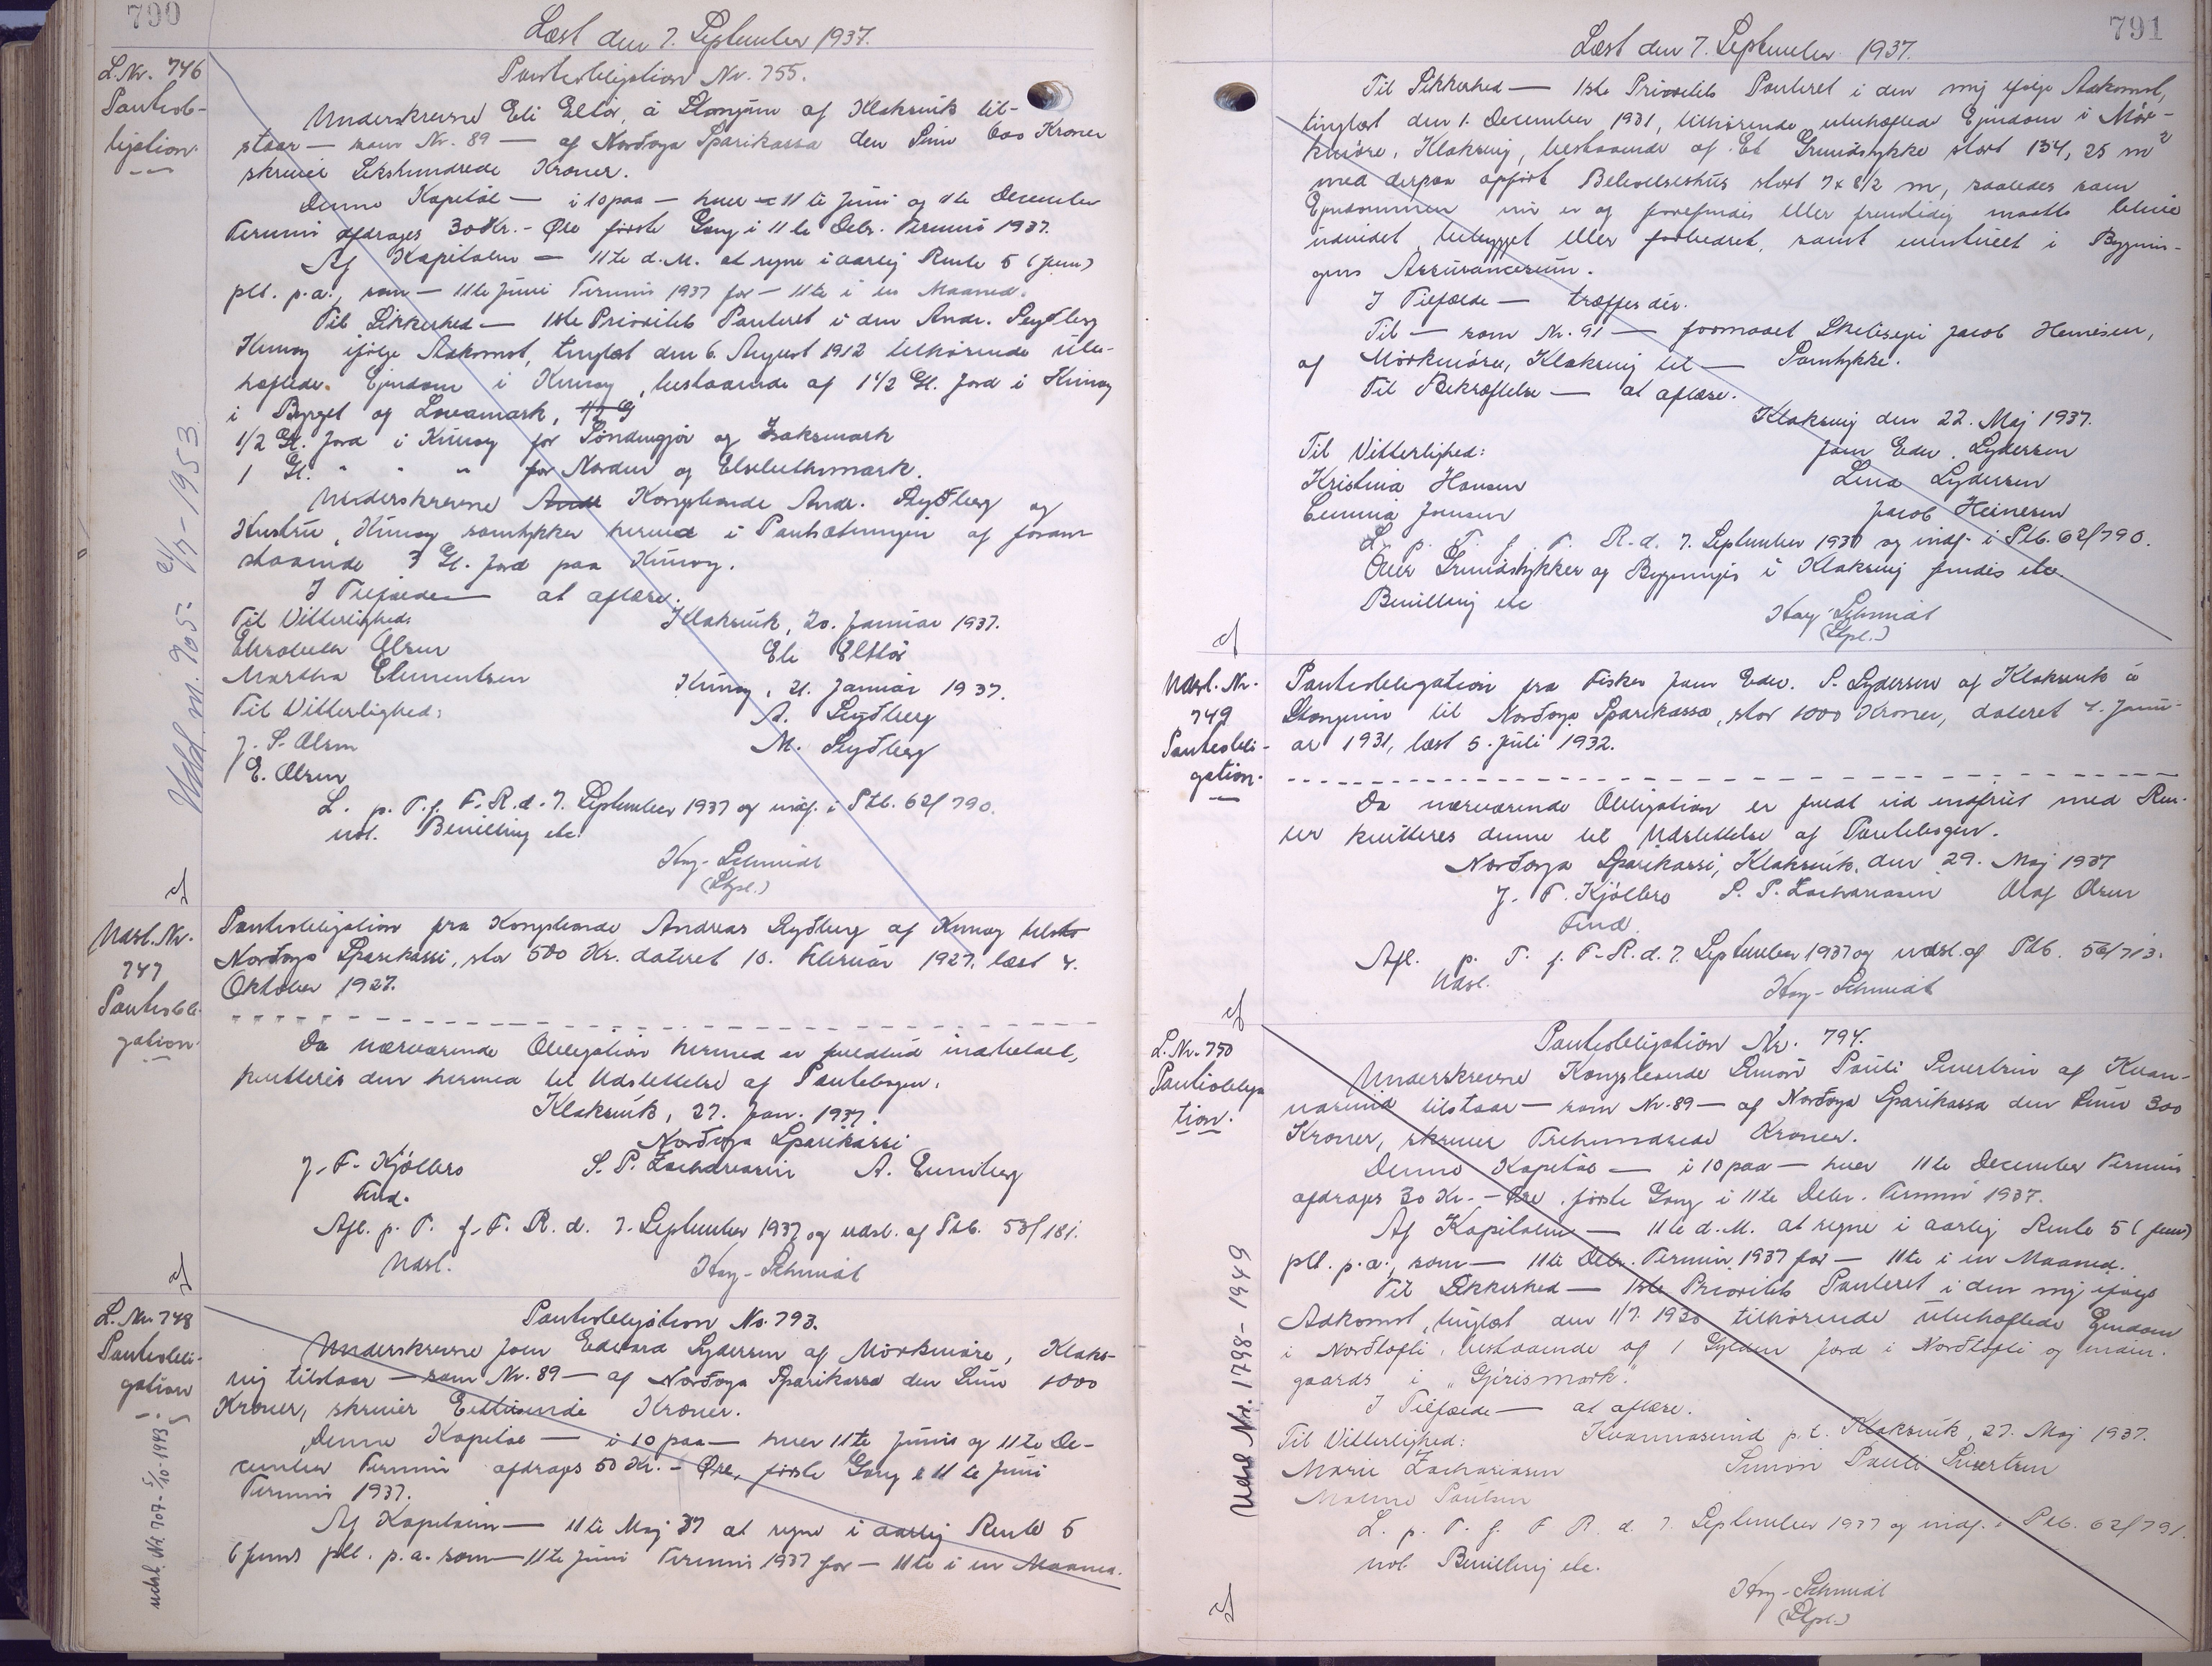 790
Læst den 7. September 1937.
L.Nr. 746
Panteob-
ligation.
Panteobligation Nr. 755.
Underskrevne Eli Eltør, á Stongum af Klaksvik til-
staar — som Nr. 89 — af Norðoya Sparikassa den Sum 600 Kroner
skriver Sekshundrede Kroner.
Denne Kapital — i 10 paa — hver — 11te Juni og 11te December
Termin afdrages 30 Kr. - Øre første Gang i 11te Debr. Termin 1937.
Af Kapitalen — 11te d.M. at regne i aarlig Rente 5 (fem)
pCt. p.a., som — 11te Juni Termin 1937 for — 11te i en Maaned.
Til Sikkerhed — 1ste Prioritets Panteret i den Andr. Leyðberg
Kunoy ifølge Adkomst, tinglæst den 6. August 1912 tilhørende ube-
hæftede Ejendom i Kunoy, bestaaende af 1 1/2 Gl. Jord i Kunoy
i Bygget og Lovamark, 1/2 G
1/2 Gl. Jord i Kunoy for Sondengjov og Isaksmark
1 Gl. " " " for Nordur og Elsebethsmark.
Underskrevne Andr Kongsbonde Andr. Leyðberg og
Hustru, Kunoy samtykker herved i Pantsætningen af foran-
staaende 3 Gl. Jord paa Kunoy.
I Tilfælde — at aflæse.
Til Vitterlighed: Klaksvik, 20. Januar 1937.
Elisabeth Olsen Eli Eltør
Martha Clementsen Kunoy, 21. Januar 1937.
Til Vitterlighed: A. Leyðberg
J. S. Olsen M. Leyðberg
E. Olsen
L. p. T. f. F. R. d. 7. September 1937 og indf. i Ptb. 62/790.
vol. Bevilling etc.
Hay-Schmidt
(Stpl.)
Udsl. Nr. 905 - 1953
Udsl. Nr.
747
Panteobli-
gation.
Panteobligation fra Kongsbonde Andreas Leyðberg af Kunoy til
Norðoya Sparikassi, stor 500 Kr. dateret 10. Februar 1927, læst 4.
Oktober 1927.
Da nærværende Obligation hermed er fuldtud indbetalt,
kvitteres den hermed til Udslettelse af Pantebogen.
Klaksvik, 27. Jan. 1937.
Norðoya Sparikassi
J. F. Kjølbro S. P. Zachariasen A. Evensberg
Fmd.
Afl. p. T. f. F. R. d. 7. September 1937 og udsl. af Ptb. 53/181.
Udsl. Hay-Schmidt
L. Nr. 748
Panteobli-
gation
Udsl. Nr. 707 - 5/10-1943
Panteobligation No. 793.
Underskrevne Joen Edvard Lydersen af Mörkmöre, Klaks-
vig tilstaar — som Nr. 89 — af Norðoya Sparikassa den Sum 1000
Kroner, skriver Ettusinde Kroner.
Denne Kapital — i 10 paa — hver 11te Juni og 11te De-
cember Termin afdrages 50 Kr. - Øre, første Gang i 11te Juni
Termin 1937.
Af Kapitalen — 11te Maj 37 at regne i aarlig Rente 5
(fem) pCt. p.a. som — 11te Juni Termin 1937 for — 11te i en Maaned.
791
Læst den 7. September 1937.
Til Sikkerhed — 1ste Prioritets Panteret i den mig ifølge Adkomst,
tinglæst den 1. December 1931, tilhørende ubehæftede Ejendom i Mör-
kmöre, Klaksvig, bestaaende af Et Grundstykke stort 134,25 m²
med derpaa opført Beboelseshus stort 7 x 8 1/2 m, saaledes som
Ejendommen nu er og forefindes eller fremtidig maatte blive
udvidet, bebygget eller forbedret, samt eventuelt i Bygnin-
gens Assurancesum.
I Tilfælde — træffes der.
Til — som Nr. 91 — formaaet Skibsejer Jacob Heinesen,
af Mörkmöre, Klaksvig til — Samtykke.
Til Bekræftelse — at aflæse.
Klaksvig den 22. Maj 1937.
Til Vitterlighed: Joen Edv. Lydersen
Kristina Hansen Lena Lydersen
Emma Joensen Jacob Heinesen
L. p. T. f. F. R. d. 7. September 1937 og indf. i Ptb. 62/790.
Over Grundstykker og Bygninger i Klaksvig findes etc.
Bevilling etc
Hay-Schmidt
(Stpl.)
Udsl. Nr.
749
Panteobli-
gation.
Panteobligation fra Fisker Joen Edv. S. Lydersen af Klaksvik á
Stongum til Norðoya Sparikassa, stor 1000 Kroner, dateret 4. Janu-
ar 1931, læst 5. Juli 1932.
Da nærværende Obligation er fuldt ud indfriet med Ren-
ter kvitteres denne til Udslettelse af Pantebogen.
Norðoya Sparikassi, Klaksvik, den 29. Maj 1937
J. F. Kjølbro S. P. Zachariasen Olaf Olsen
Fmd.
Afl. p. T. f. F. R. d. 7. September 1937 og udsl. af Ptb. 56/713.
Udsl. Hay-Schmidt
L. Nr. 750
Panteobliga
tion.
Panteobligation Nr. 794.
Underskrevne Kongsbonde Simon Pauli Sivertsen af Kvan-
nasund tilstaar — som Nr. 89 — af Norðoya Sparikassa den Sum 300
Kroner, skriver Trehundrede Kroner.
Denne Kapital — i 10 paa — hver 11te December Termin
afdrages 30 Kr. - Øre, første Gang i 11te Debr. Termin 1937.
Af Kapitalen — 11te d.M. at regne i aarlig Rente 5 (fem)
pCt. p.a., som — 11te Debr. Termin 1937 for — 11te i en Maaned.
Til Sikkerhed — 1ste Prioritets Panteret i den mig ifølge
Adkomst, tinglæst den 1/7. 1930 tilhørende ubehæftede Ejendom
i Norðtofti, bestaaende af 1 Gylden Jord i Norðtofti og indan-
gaards i „Gjørismørk".
I Tilfælde — at aflæse.
Til Vitterlighed: Kvannasund p.t. Klaksvik, 27. Maj 1937.
Marie Zachariasen Simon Pauli Sivertsen
Malena Poulsen
L. p. T. f. F. R. d. 7. September 1937 og indf. i Ptb. 62/791.
vol. Bevilling etc.
Hay-Schmidt
(Stpl.)
Udsl Nr. 1798-1949